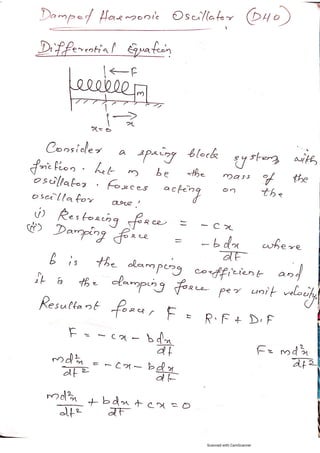 Damped Harmonic Oscillator (DHO)
Differential Equation
← F
m
x
x=0
Consider a spring block system with
friction. Let m be the mass of the
oscillator. Forces acting on the
oscillator are:
i) Restoring force = - cx
ii) Damping force = - b dx/dt where
b is the damping coefficient and
it is the damping force per unit velocity
Resultant force, F = R.F + D.F
F = - cx - b dx/dt F = m d²x/dt²
m d²x/dt² = - cx - b dx/dt
m d²x/dt² + b dx/dt + cx = 0
Scanned with CamScanner